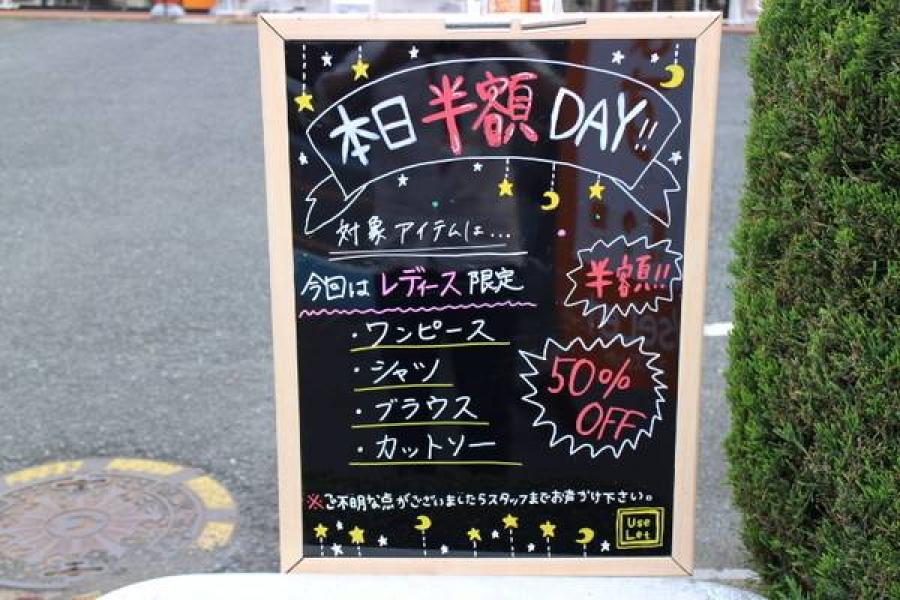 本日半額DAY!!
対象アイテムは...
今回はレディース限定
半額!!
・ワンピース
・シャツ
・ブラウス
・カットソー
50%
OFF
※ご不明な点がございましたらスタッフまでお声がけ下さい。
Use
Let